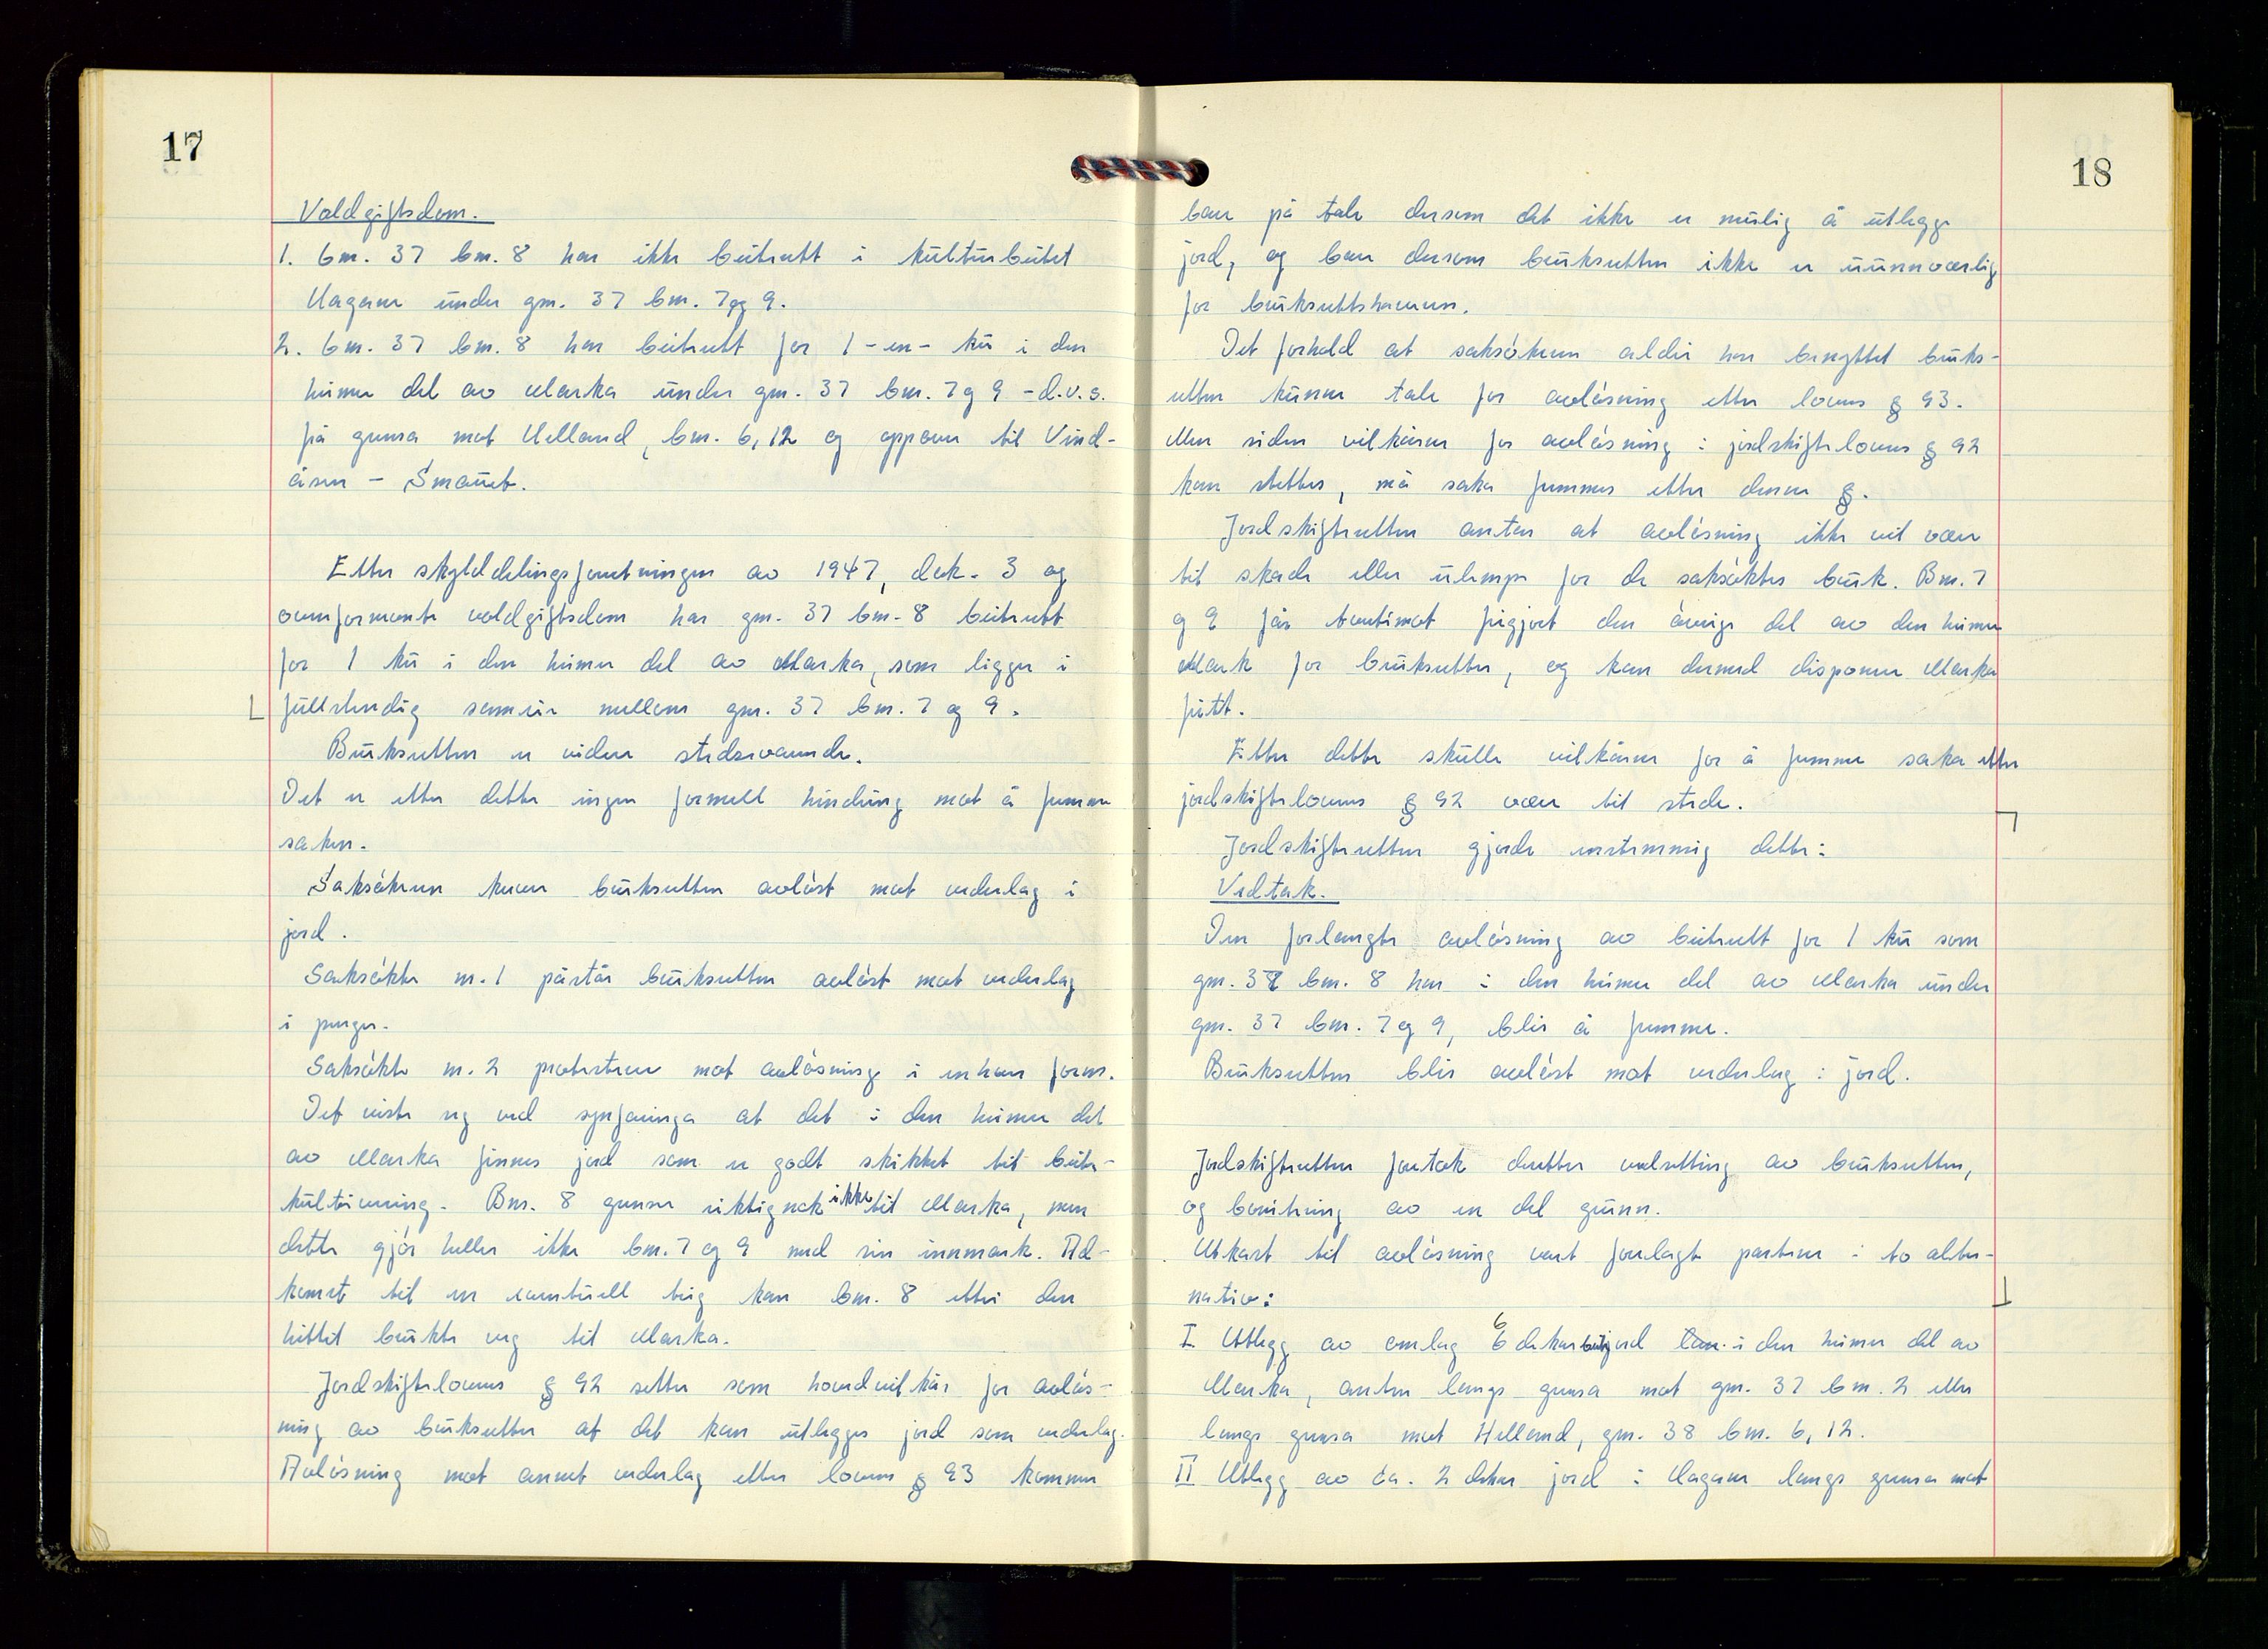 17
Voldgiftsdom.
1. bnr. 37 bnr. 8 har ikke beiterett i kulturbeitet
Hagane under gnr. 37 bnr. 7 og 9.
2. bnr. 37 bnr. 8 har beiterett for 1 - en - ku i den
heimre del av Marka under gnr. 37 bnr. 7 og 9 - d.v.s.
frå grensa mot Helland, bnr. 6, 12 og oppover til Vind-
åsen - Småvet.
Etter skylddelingsforretningen av 1947, dok. 3 og
ovenformente voldgiftsdom har gnr. 37 bnr. 8 beiterett
for 1 ku i den heimre del av Marka, som ligger i
fullstendig sameie mellom gnr. 37 bnr. 7 og 9.
Bruksretten er videre stedsevarende.
Det er etter dette ingen formell hindring mot å fremme
saken.
Saksøkeren krever bruksretten avløst mot vederlag i
jord.
Saksøkte nr. 1 påstår bruksretten avløst mot vederlag
i penger.
Saksøkte nr. 2 protesterer mot avløsning i enhver form.
Det viste seg ved synfaringa at det i den heimre del
av Marka finnes jord som er godt skikket til beite-
kultivering. Bnr. 8 grenser riktignok ikke til Marka, men
dette gjør heller ikke bnr. 7 og 9 med sin innmark. Ad-
komst til en eventuell teig kan bnr. 8 etter den
hittil brukte veg til Marka.
Jordskiftelovens § 92 setter som hovedvilkår for avløs-
ning av bruksretter at det kan utlegges jord som vederlag.
Avløsning mot annet vederlag etter lovens § 93 kommer
18
bare på tale dersom det ikke er mulig å utlegge
jord, og bare dersom bruksretten ikke er uunnværlig
for bruksrettshaveren.
Det forhold at saksøkeren aldri har benyttet bruks-
retten kunne tale for avløsning etter lovens § 93.
Men siden vilkårene for avløsning i jordskiftelovens § 92
kan stettes, må saka fremmes etter denne §.
Jordskifteretten antar at avløsning ikke vil være
til skade eller ulempe for de saksøktes bruk. Bnr. 7
og 9 får tvertimot frigjort den øvrige del av den heimre
Mark for bruksretter, og kan dermed disponere Marka
fritt.
Etter dette skulle vilkårene for å fremme saka etter
jordskiftelovens § 92 være til stede.
Jordskifteretten gjorde enstemmig dette:
Vedtak.
Den forlangte avløsning av beiterett for 1 ku som
gnr. 37 bnr. 8 har i den heimre del av Marka under
gnr. 37 bnr. 7 og 9, blir å fremme.
Bruksretten blir avløst mot vederlag i jord.
Jordskifteretten foretok deretter verdsetting av bruksretten,
og bonitering av en del grunn.
Utkast til avløsning vart forelagt partene i to alter-
nativ:
I. Utlegg av omlag 6 dekar beitejord i den heimre del av
Marka, enten langs grensa mot gnr. 37 bnr. 2 eller
langs grensa mot Helland, gnr. 38 bnr. 6, 12.
II Utlegg av ca. 2 dekar jord i Hagane langs grensa mot